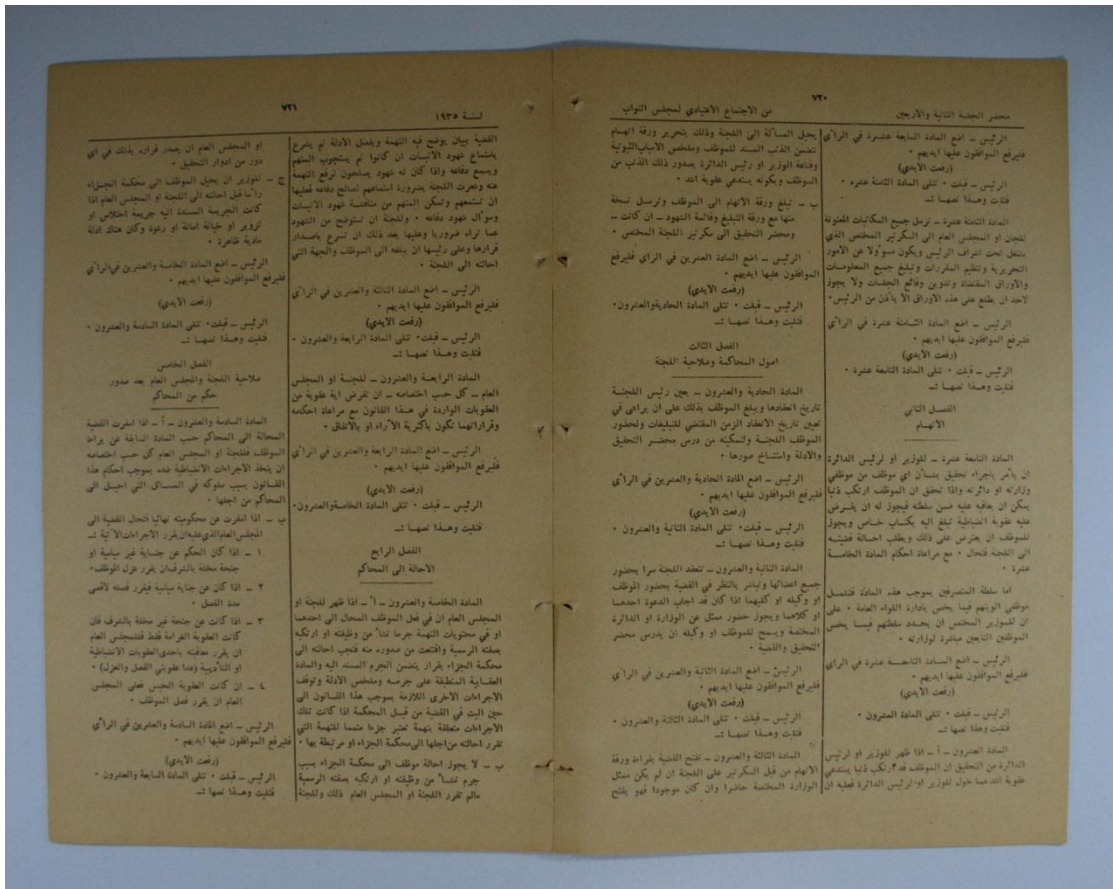 ٧٢٠
محضر الجلسة الثانية والاربعين
من الاجتماع الاعتيادي لمجلس النواب
الرئيس ــ اضع المادة السابعة عشرة في الرأي
فليرفع الموافقون عليها ايديهم ٠
(رفعت الايدي)
الرئيس ــ قبلت ٠ تتلى المادة الثامنة عشرة ٠
فتليت وهذا نصها :ــ
المادة الثامنة عشرة ــ ترسل جميع المكاتبات المعنونة
للجان او المجلس العام الى السكرتير المختص الذي
يشتغل تحت اشراف الرئيس ويكون مسؤولا عن الامور
التحريرية وتنظيم المقررات وتبليغ جميع المعلومات
والاوراق المقتضاة وتدوين وقائع الجلسات ولا يجوز
لاحد ان يطلع على هذه الاوراق الا بأذن من الرئيس٠
الرئيس ــ اضع المادة الثامنة عشرة في الرأي
فليرفع الموافقون عليها ايديهم ٠
(رفعت الايدي)
الرئيس ــ قبلت ٠ تتلى المادة التاسعة عشرة ٠
فتليت وهذا نصها :ــ
الفصل الثاني
الاتهام
المادة التاسعة عشرة ــ للوزير او لرئيس الدائرة
ان يأمر باجراء تحقيق بشأن اي موظف من موظفي
وزارته او دائرته واذا تحقق ان الموظف ارتكب ذنبا
يمكن ان يعاقبه عليه ضمن سلطته فيجوز له ان يفرض
عليه عقوبة انضباطية تبلغ اليه بكتاب خاص ويجوز
للموظف ان يعترض على ذلك ويطلب احالة قضيته
الى اللجنة فتحال ٠ مع مراعاة احكام المادة الخامسة
عشرة ٠
اما سلطة المتصرفين بموجب هذه المادة فتشمل
موظفي الويتهم فيما يختص بادارة اللواء العامة ٠ على
ان للوزير المختص ان يحدد سلطتهم فيما يخص
الموظفين التابعين مباشرة لوزارته ٠
الرئيس ــ اضع المادة التاسعة عشرة في الراي
فليرفع الموافقون عليها ايديهم ٠
(رفعت الايدي)
الرئيس ــ قبلت ٠ تتلى المادة العشرون ٠
فتليت وهذا نصها :ــ
المادة العشرون ــ أ ــ اذا ظهر للوزير او لرئيس
الدائرة من التحقيق ان الموظف قد ارتكب ذنبا يستدعي
عقوبة اشد مما خول للوزير او لرئيس الدائرة فعليه ان
يحيل المسألة الى اللجنة وذلك بتحرير ورقة اتهام
تتضمن الذنب المسند للموظف وملخص الاسباب الثبوتية
وقناعة الوزير او رئيس الدائرة بصدور ذلك الذنب من
الموظف وبكونه يستدعي عقوبة اشد ٠
ب ــ تبلغ ورقة الاتهام الى الموظف وترسل نسخة
منها مع ورقة التبليغ وقائمة الشهود ــ ان كانت ــ
ومحضر التحقيق الى سكرتير اللجنة المختص ٠
الرئيس ــ اضع المادة العشرين في الراي فليرفع
الموافقون عليها ايديهم ٠
(رفعت الايدي)
الرئيس ــ قبلت٠ تتلى المادة الحادية والعشرون٠
فتليت وهذا نصها :ــ
الفصل الثالث
اصول المحاكمة وصلاحية اللجنة
المادة الحادية والعشرون ــ يعين رئيس اللجنة
تاريخ انعقادها ويبلغ الموظف بذلك على ان يراعى في
تعيين تاريخ الانعقاد الزمن المقتضي للتبليغات ولحضور
الموظف اللجنة ولتمكينه من درس محضر التحقيق
والادلة واستنساخ صورها ٠
الرئيس ــ اضع المادة الحادية والعشرين في الرأي
فليرفع الموافقون عليها ايديهم ٠
(رفعت الايدي)
الرئيس ــ قبلت٠ تتلى المادة الثانية والعشرون ٠
فتليت وهذا نصها :ــ
المادة الثانية والعشرون ــ تنعقد اللجنة سرا بحضور
جميع اعضائها وتباشر بالنظر في القضية بحضور الموظف
او وكيله او كليهما اذا كان قد اجاب الدعوة احدهما
او كلاهما ويجوز حضور ممثل عن الوزارة او الدائرة
المختصة ويسمح للموظف او وكيله ان يدرس محضر
التحقيق والقضية ٠
الرئيس ــ اضع المادة الثانية والعشرين في الراي
فليرفع الموافقون عليها ايديهم ٠
(رفعت الايدي)
الرئيس ــ قبلت ٠ تتلى المادة الثالثة والعشرون ٠
فتليت وهذا نصها :ــ
المادة الثالثة والعشرون ــ تفتح القضية بقراءة ورقة
الاتهام من قبل السكرتير على اللجنة ان لم يكن ممثل
الوزارة المختصة حاضرا وان كان موجودا فهو يفتح
٧٢١
لسنة ١٩٣٥
القضية ببيان يوضح فيه التهمة ويفصل الادلة ثم يشرع
باستماع شهود الاثبات ان كانوا ثم يستجوب المتهم
ويسمع دفاعه واذا كان له شهود يصلحون لرفع التهمة
عنه وشعرت اللجنة بضرورة استماعهم لصالح دفاعه فعليها
ان تستمعهم وتمكن المتهم من مناقشة شهود الاثبات
وسؤال شهود دفاعه ٠ وللجنة ان تستوضح من الشهود
عما تراه ضروريا وعليها بعد ذلك ان تسرع باصدار
قرارها وعلى رئيسها ان يبلغه الى الموظف والجهة التي
احالته الى اللجنة ٠
الرئيس ــ اضع المادة الثالثة والعشرين في الرأي
فليرفع الموافقون عليها ايديهم ٠
(رفعت الايدي)
الرئيس ــ قبلت٠ تتلى المادة الرابعة والعشرون ٠
فتليت وهذا نصها :ــ
المادة الرابعة والعشرون ــ للجنة او المجلس
العام ــ كل حسب اختصاصه ــ ان تفرض اية عقوبة من
العقوبات الواردة في هذا القانون مع مراعاة احكامه
وقراراتهما تكون بأكثرية الآراء او بالاتفاق ٠
الرئيس ــ اضع المادة الرابعة والعشرين في الرأي
فليرفع الموافقون عليها ايديهم ٠
(رفعت الايدي)
الرئيس ــ قبلت٠ تتلى المادة الخامسة والعشرون٠
فتليت وهذا نصها :ــ
الفصل الرابع
الاحالة الى المحاكم
المادة الخامسة والعشرون ــ أ ــ اذا ظهر للجنة او
المجلس العام ان في فعل الموظف المحال الى احدهما
او في محتويات التهمة جرما نشأ من وظيفته او ارتكبه
بصفته الرسمية واقتنعت من صدوره منه فتجب احالته الى
محكمة الجزاء بقرار يتضمن الجرم المسند اليه والمادة
القانونية المنطبقة على جرمه وملخص الادلة وتوقف
الاجراءات الاخرى اللازمة بموجب هذا القانون الى
حين البت في القضية من قبل المحكمة اذا كانت تلك
الاجراءات متعلقة بتهمة تعتبر جزءا متمما للتهمة التي
تقرر احالته من اجلها الى محكمة الجزاء او مرتبطة بها ٠
ب ــ لا يجوز احالة موظف الى محكمة الجزاء بسبب
جرم نشأ من وظيفته او ارتكبه بصفته الرسمية
مالم تقرر اللجنة او المجلس العام ذلك وللجنة
او المجلس العام ان يصدر قراره بذلك في أي
دور من ادوار التحقيق ٠
ج ــ للوزير ان يحيل الموظف الى محكمة الجزاء
رأسا قبل احالته الى اللجنة او المجلس العام اذا
كانت الجريمة المسندة اليه جريمة اختلاس او
تزوير او خيانة امانة او رشوة وكان هناك ادلة
مادية ظاهرة ٠
الرئيس ــ اضع المادة الخامسة والعشرين في الرأي
فليرفع الموافقون عليها ايديهم ٠
(رفعت الايدي)
الرئيس ــ قبلت٠ تتلى المادة السادسة والعشرون ٠
فتليت وهذا نصها :ــ
الفصل الخامس
صلاحية اللجنة والمجلس العام بعد صدور
حكم من المحاكم
المادة السادسة والعشرون ــ أ ــ اذا اسفرت القضية
المحالة الى المحاكم حسب المادة السابقة عن براءة
الموظف فللجنة او المجلس العام كل حسب اختصاصه
ان يتخذ الاجراءات الانضباطية ضده بموجب احكام هذا
القانون بسبب سلوكه في المسائل التي احيل الى
المحاكم من اجلها ٠
ب ــ اذا اسفرت عن محكوميته نهائيا فتحال القضية الى
المجلس العام الذي عليه ان يقرر الاجراءات الآتية :ــ
١ ــ اذا كان الحكم عن جناية غير سياسية او
جنحة مخلة بالشرف ان يقرر عزل الموظف٠
٢ ــ اذا كان عن جناية سياسية فيقرر فصله لاقصى
مدة الفصل ٠
٣ ــ اذا كانت عن جنحة غير مخلة بالشرف فان
كانت العقوبة الغرامة فقط فللمجلس العام
ان يقرر معاقبته باحدى العقوبات الانضباطية
او التأديبية (عدا عقوبتي الفصل والعزل) ٠
٤ ــ ان كانت العقوبة الحبس فعلى المجلس
العام ان يقرر فصل الموظف ٠
الرئيس ــ اضع المادة السادسة والعشرين في الرأي
فليرفع الموافقون عليها ايديهم ٠
(رفعت الايدي)
الرئيس ــ قبلت ٠ تتلى المادة السابعة والعشرون ٠
فتليت وهذا نصها :ــ